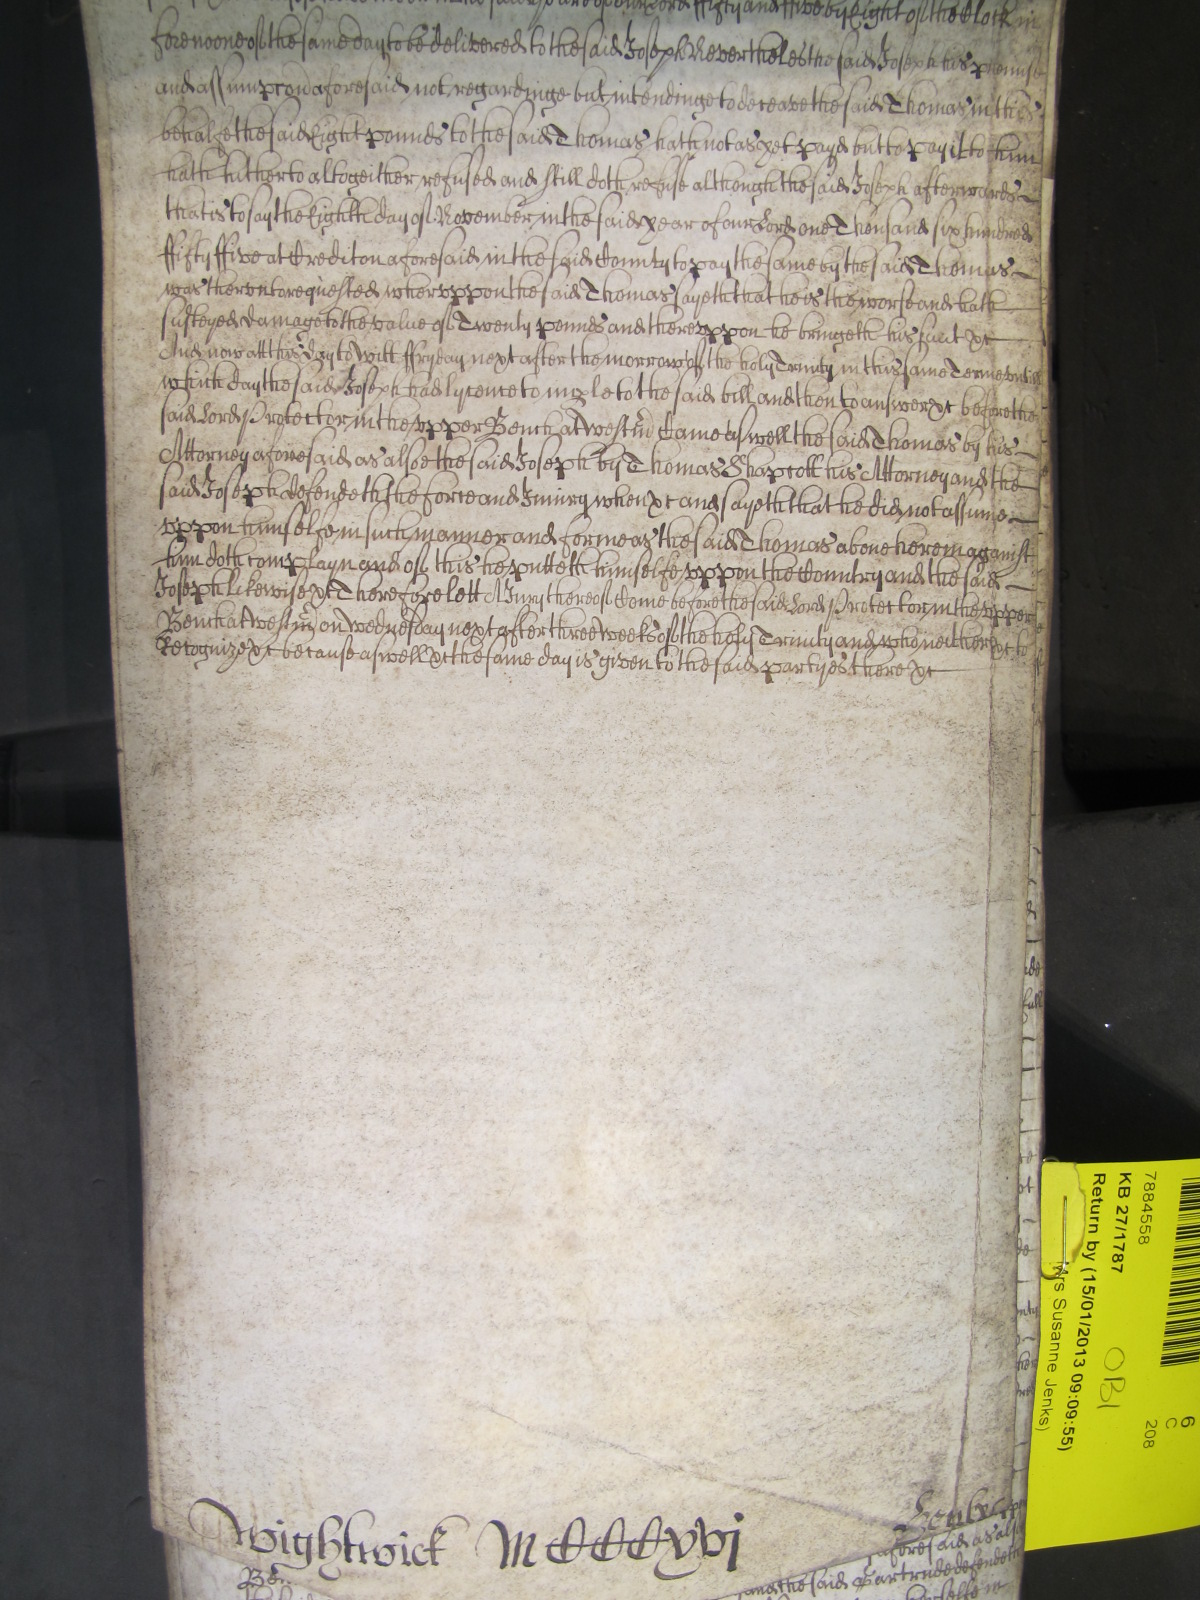 said yeare of our Lord ffifty and ffive by Eight of the Clock in
forenoone of the same day to be delivered to the said Joseph Neverthelesse the said Joseph his promise
and assumpcon aforesaid not regardinge but intendinge to deceave the said Thomas in this
behalfe the said Eight pounds to the said Thomas hath not as yet payd but to pay it to him
hath hitherto altogeither refused and still doth refuse although the said Joseph afterwards
that is to say the Eighth day of November in the said year of our Lord one Thousand six hundred
ffifty ffive at Crediton aforesaid in the said County to pay the same by the said Thomas
was therunto requested wheruppon the said Thomas sayeth that he is the worse and hath
susteyned damage to the value of Twenty pounds and thereuppon he bringeth his suit &c
And now att this day to witt ffryday next after the morrow of the holy Trinity in this same Terme untill
which day the said Joseph had lycence to imple to the said bill and then to answer &c before the
said Lord Protector in the upper Bench at Westmr Came aswell the said Thomas by his
Attorney aforesaid as alsoe the said Joseph by Thomas Shapcott his Attorney and the
said Joseph defendeth the force and Iniury when &c and sayeth that he did not assume
uppon himselfe in such manner and forme as the said Thomas above herein against
him doth complayn and of this he putteth himselfe uppon the Country and the said
Joseph likewise &c Therefore lett A Jury thereof Come before the said Lord Protector in the upper
Bench at Westmr on Wednesday next after three weeks of the holy Trinity and who neither &c to
Recognize &c because aswell &c the same day is given to the said partyes there &c
Wightwick MCCCCxvj
aforesaid as als
and the said Gartrude defendeth
himselfe in
7884558
KB 27/1787
Return by (15/01/2013 09:09:55)
Mrs Susanne Jenks)
OB1
6
C
208